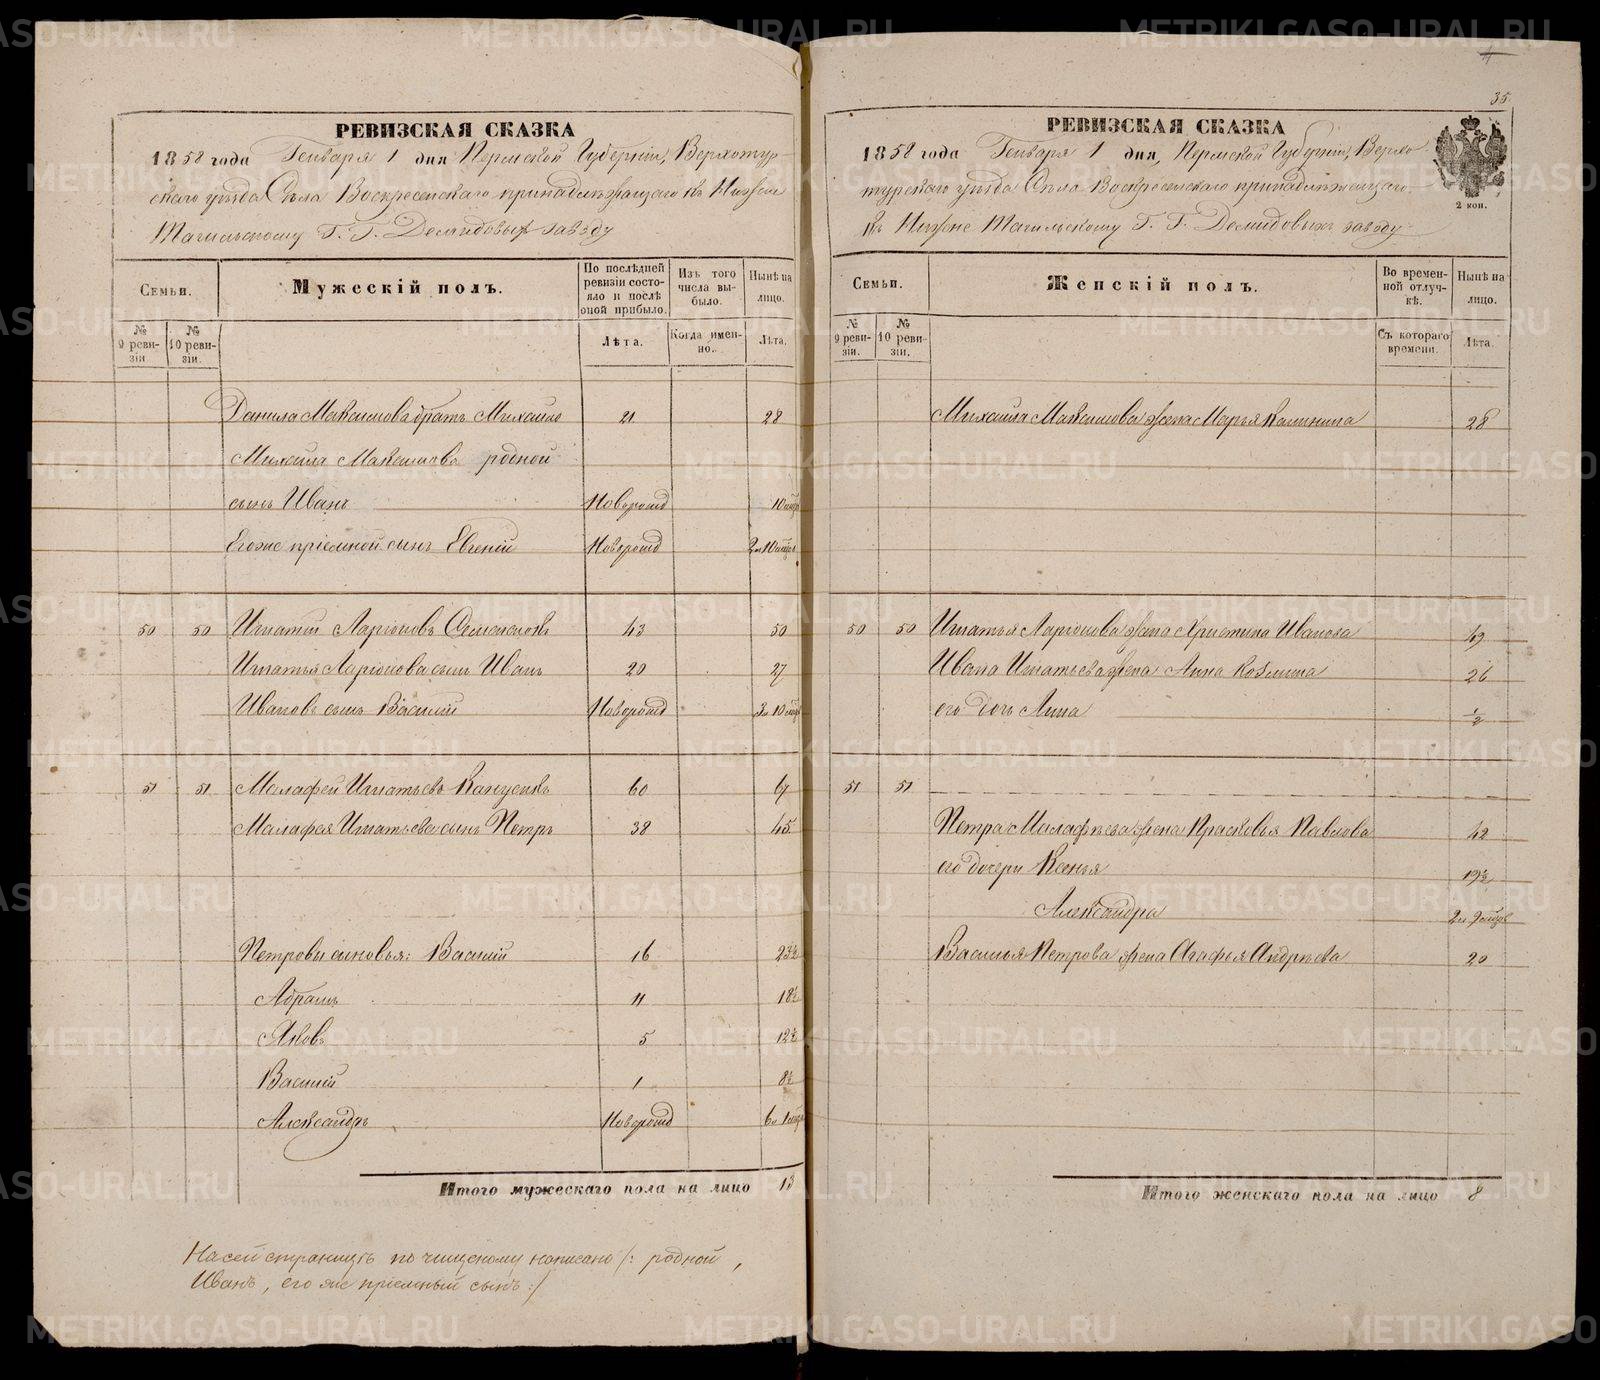 4
35.
РЕВИЗСКАЯ СКАЗКА
1858 года Генваря 1 дня Пермской Губерніи, Верхотур-
скаго уѣзда Села Воскресенскаго принадлежащаго къ Нижне
Тагильскому Г. Г. Демидовых заводу
Семьи.
Мужескій полъ.
По послѣдней ревизіи состояло и послѣ оной прибыло.
Изъ того числа выбыло.
Нынѣ на лицо.
№ 9 ревизіи.
№ 10 ревизіи.
Лѣта.
Когда именно.
Лѣта.
Данила Максимова братъ Михайло 21 28
Михайла Максимова родной
сынъ Иванъ Новорожд 10 мѣс
Егоже пріемной сынъ Евгеній Новорожд 2 10 мѣс
50 50 Игнатій Ларіоновъ 43 50
Игнатья Ларіонова сынъ Иванъ 20 27
Ивановъ сынъ Василій Новорожд 3 10 мѣс
51 51 Малафей Игнатьевъ 60 67
Малафея Игнатьева сынъ Петръ 38 45
Петровы сыновья: Василій 16 23½
Абрамъ 11 18½
Яковъ 5 12½
Василій 1 8½
Александръ Новорожд 6 1 мѣс
Итого мужескаго пола на лицо 13
На сей страницѣ по чищеному написано /: родной,
Иванъ, его же пріемный сынъ :/
РЕВИЗСКАЯ СКАЗКА
1858 года Генваря 1 дня, Пермской Губерніи, Верхо-
турскаго уѣзда Села Воскресенскаго принадлежащаго
къ Нижне Тагильскому Г. Г. Демидовыхъ заводу
2 коп.
Семьи.
Женскій полъ.
Во временной отлучкѣ.
Нынѣ на лицо.
№ 9 ревизіи.
№ 10 ревизіи.
Съ котораго времени.
Лѣта.
Михайла Максимова жена Марья Калинина 28
50 50 Игнатья Ларіонова жена Христина Иванова 49
Ивана Игнатьева жена Анна Козмина 26
его дочь Анна ½
51 51
Петра Малафѣева жена Прасковья Павлова 42
его дочери Ксенья 19½
Александра 2 9 мѣс
Василья Петрова жена Агафья Андрѣева 20
Итого женскаго пола на лицо 8
METRIKI.GASO-URAL.RU